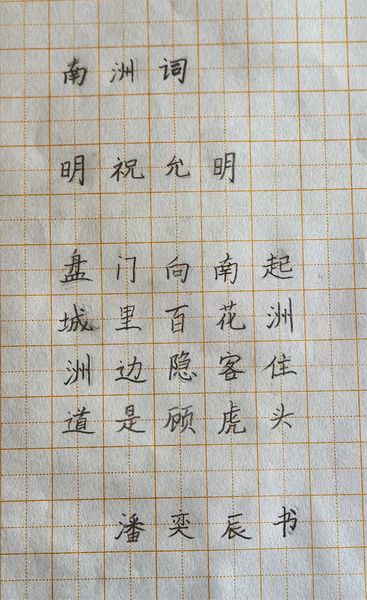 南洲词
明祝允明
盘门向南起
城里百花洲
洲边隐客住
道是顾虎头
潘奕辰书